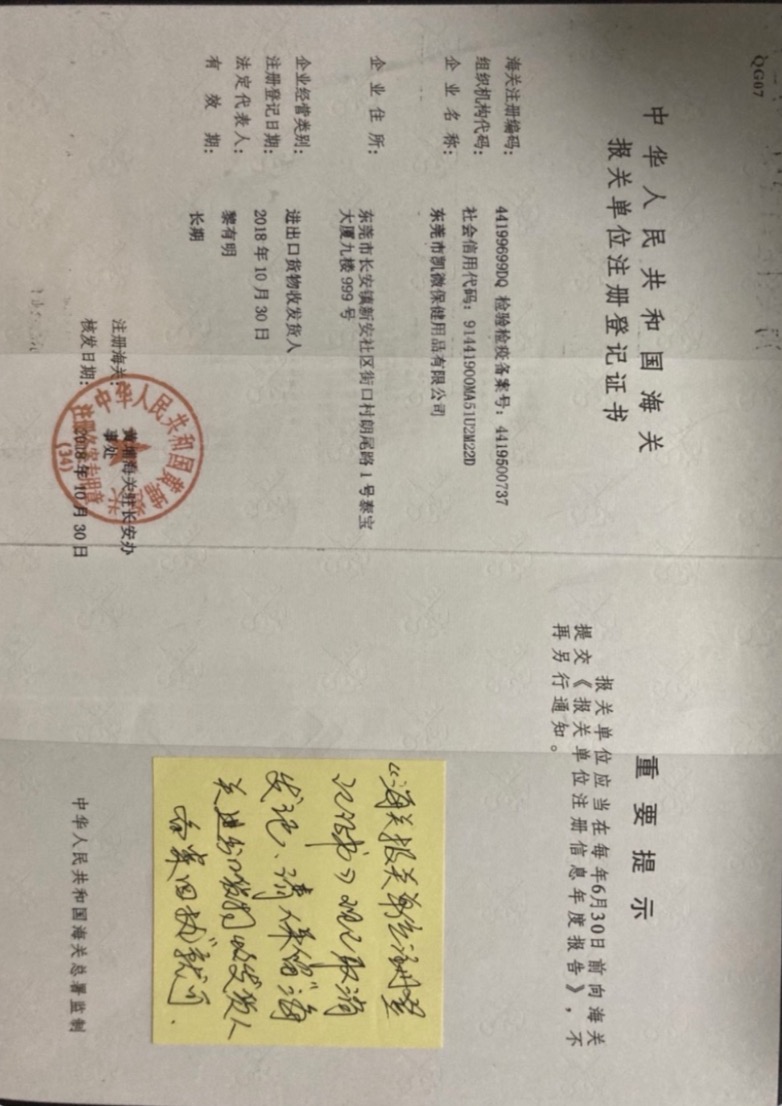 QG07
中华人民共和国海关
报关单位注册登记证书
海关注册编码： 44199699DQ 检验检疫备案号：4419500737
组织机构代码： 社会信用代码：91441900MA51U2M22D
企业名称： 东莞市凯微保健用品有限公司
企业住所： 东莞市长安镇新安社区街口村朗尾路1号泰宝
大厦九楼999号
企业经营类别： 进出口货物收发货人
注册登记日期： 2018年10月30日
法定代表人： 黎有明
有效期： 长期
注册海关： 黄埔海关驻长安办
事处
核发日期： 2018年10月30日
中华人民共和国黄埔海关
注册备案专用章
(34)
重要提示
报关单位应当在每年6月30日前向海关
提交《报关单位注册信息年度报告》，不
再另行通知。
“海关报关单位注册登
记证书》现已取消
发记、请保留“海
关进出口货物收发货人
备案回执”就可.
中华人民共和国海关总署监制